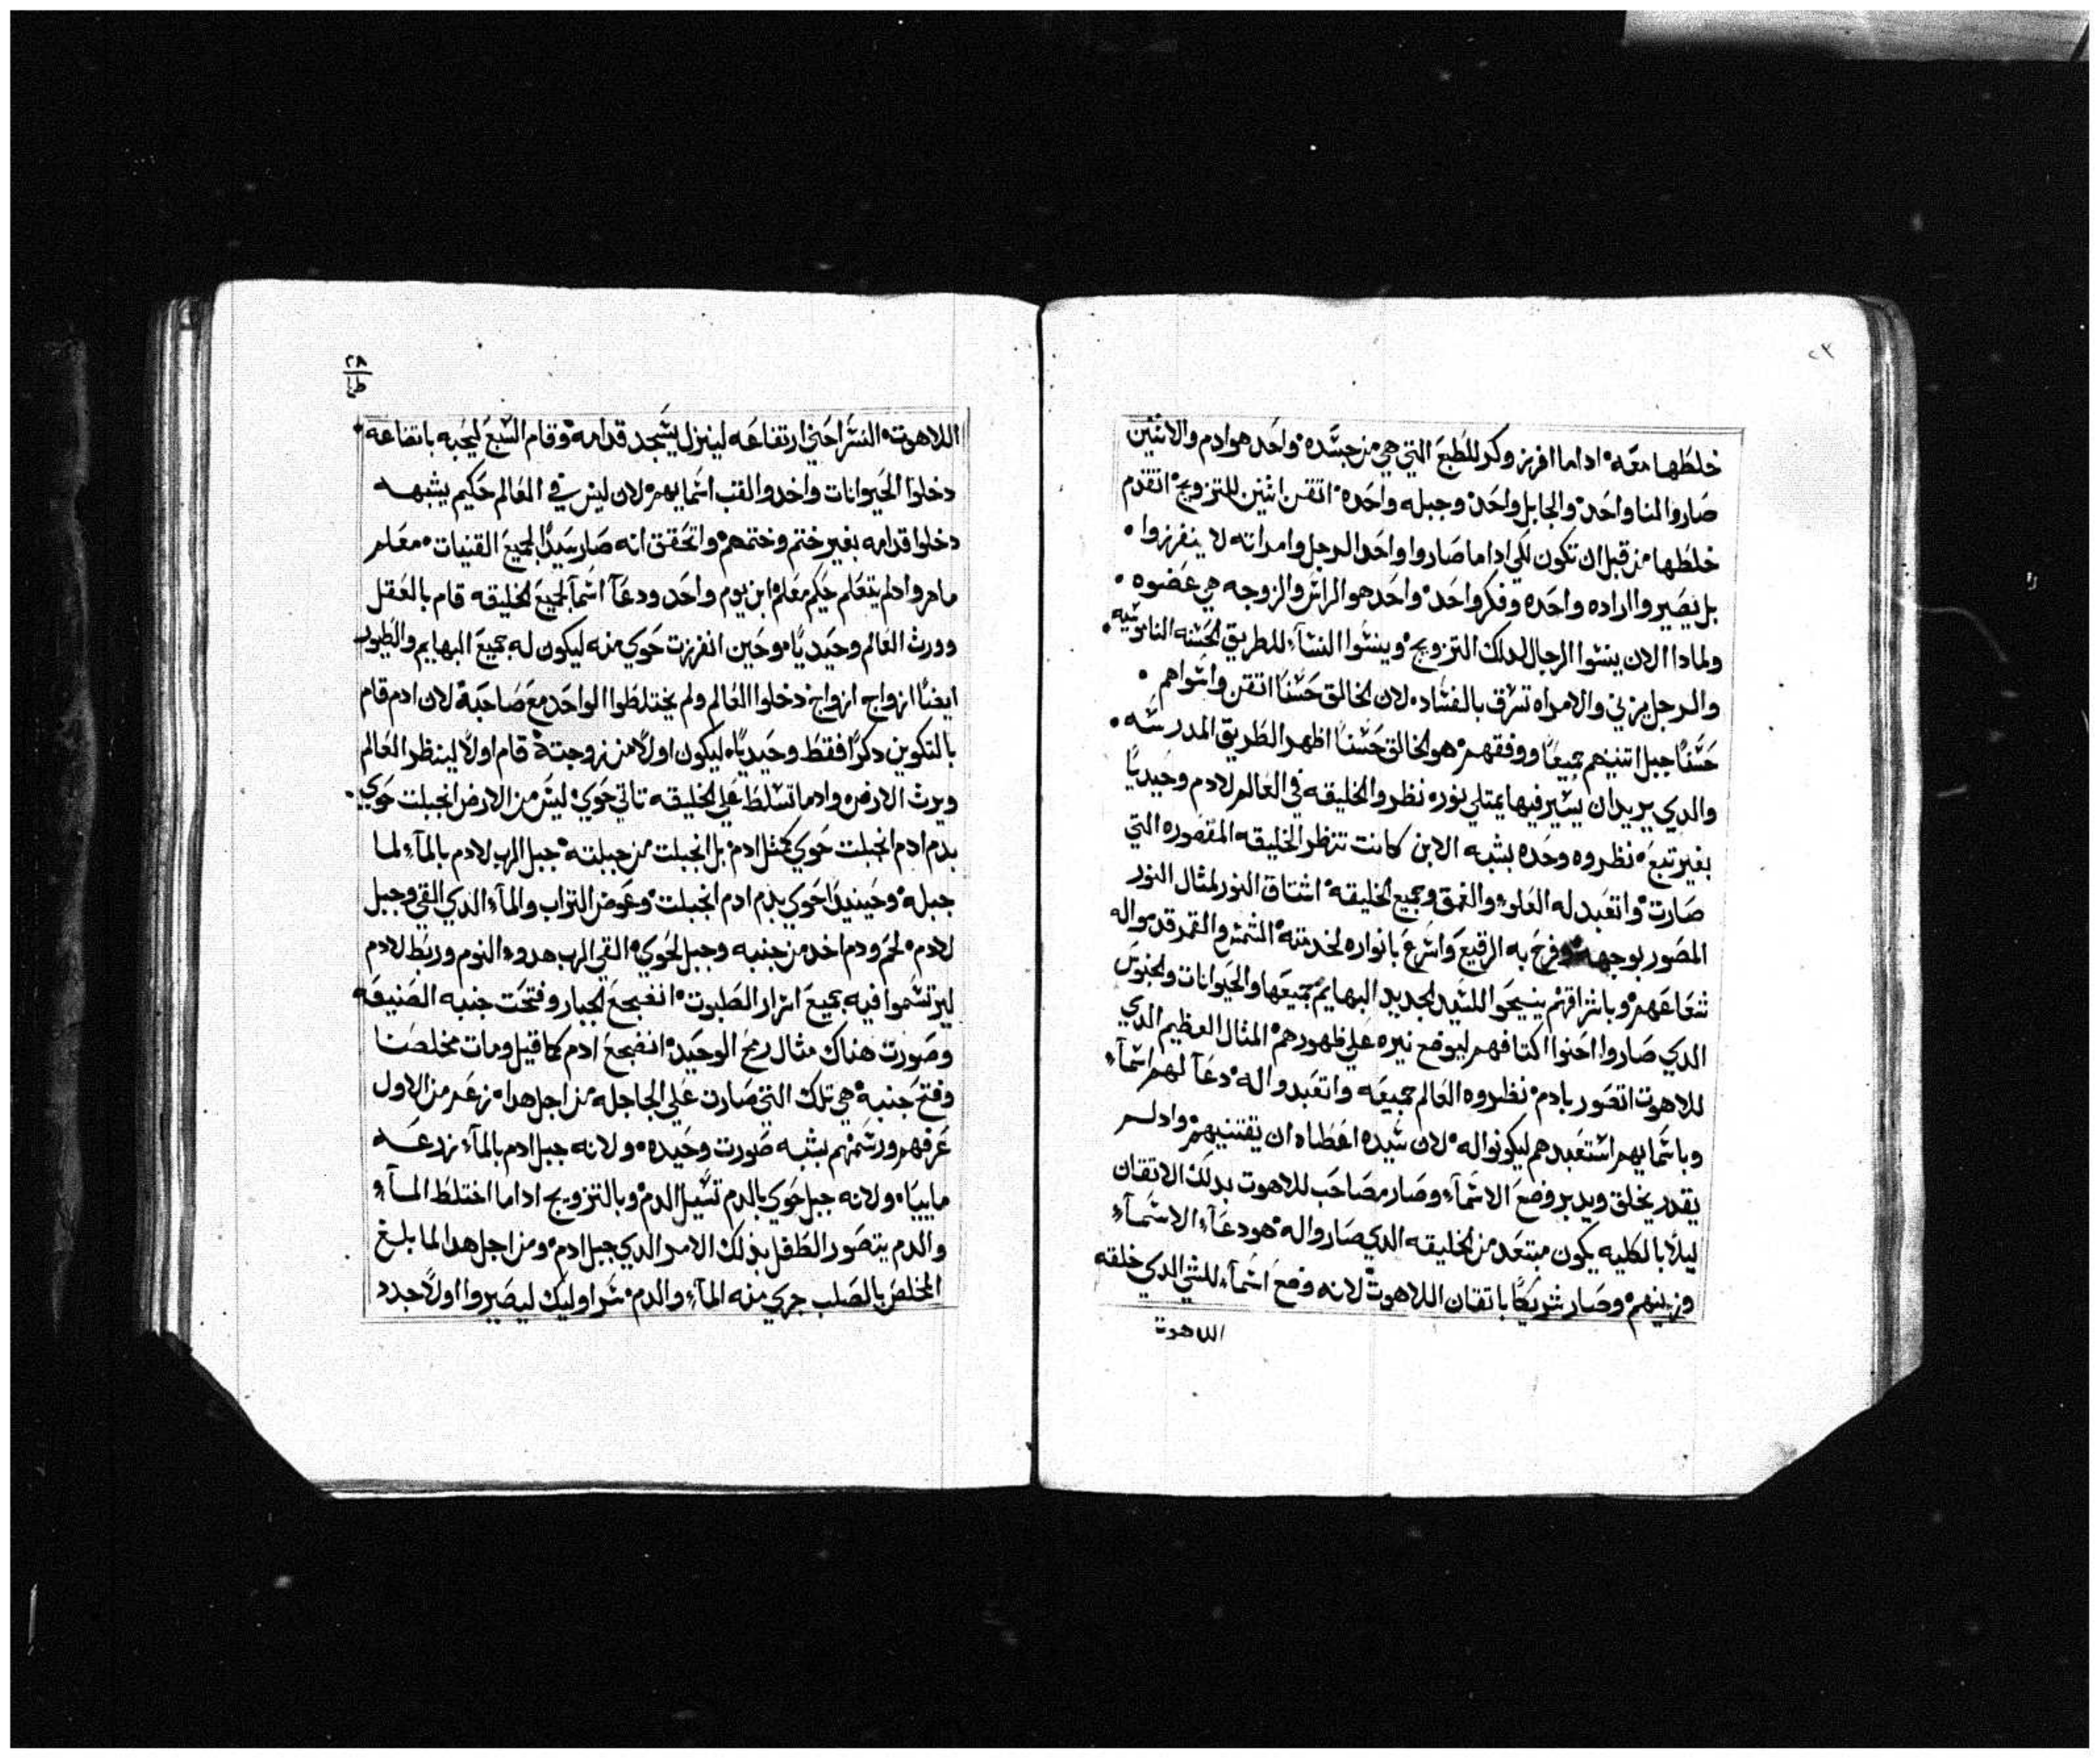 ٢٣
خلطها معه اداما افرز وكر للطبع التي هي من جسده واحد هو ادم والاثنين
صاروا لمنا واحد والجابل واحد وجبله واحده اتقن اثنين للتزويج اتقدم
خلطها من قبل ان تكون لكي اداما صاروا واحد الرجل وامراته لا ينفرزوا
بل يصيروا اراده واحده وفكر واحد واحد هو الراس والزوجه هي عضوه
ولمادا الان ينسوا الرجال لدلك التزويج وينسوا النسآء للطريق الحسنه الناموسيه
والرجل يزني والامراه تسرق بالفساد لان الخالق حسنًا اتقن واسواهم
حسنًا جبل اتنينهم جميعًا ووفقهم هو الخالق حسنًا اظهر الطريق المدرسه
والدي يريد ان يسير فيها يمتلي نوره نظروا الخليقه في العالم لادم وحيديًا
بغير تبع نظروه وحده بشبه الابن كانت تنتظر الخليقه المقصوره التي
صارت واتعبد له العلو والعمق وجميع الخليقه اشتاق النور لمثال النور
المصور بوجهه وفرح به الرقيع واسرع بانواره لخدمته الشمس والقمر قدموا له
شعاعهم وباشراقهم ينسيحوا للسيد الجديد البهايم جميعها والحيوانات والجنوس
الدي صاروا احنوا اكتافهم ليوضع نيره علي ظهورهم المثال العظيم الدي
للاهوت اتصور بادم نظروه العالم جميعه واتعبدوا له دعآ لهم اسمآء
وباسمايهم استعبدهم ليكونوا له لان سيده اعطاه ان يقتنيهم وادلم
يقدر يخلق ويدبر وضع الاسمآء وصار مصاحب للاهوت بدلك الاتقان
ليلا بالكليه يكون مبتعد من الخليقه الدي صاروا له هو دعآء الاسمآء
وزينهم وصار شريكًا باتقان اللاهوت لانه وضع اسمآء للشي الدي خلقه
اللاهوت
٢٨
ط
اللاهوت النسر احني ارتفاعه لينزل يسجد قدامه وقام السبع ليجبه باتضاعه
دخلوا الحيوانات واخدوا لقب اسمايهم لان ليس في العالم حكيم يشبهه
دخلوا قدامه بغير ختم وختمهم واتحقق انه صار سيدًا لجميع القنيات معلم
ماهر وادلم يتعلم حكيم معلم ابن يوم واحد ودعآ اسمآ لجميع الخليقه قام بالعقل
وورث العالم وحيديًا وحين انفرزت حوي منه ليكون له جميع البهايم والطيور
ايضًا ازواج ازواج دخلوا العالم ولم يختلطوا الواحد مع صاحبة لان ادم قام
بالتكوين دكرًا فقط وحيديًا ليكون اولًا من زوجتة قام اولًا لينظر العالم
ويرث الارض وادما تسلط علي الخليقه تاتي حوي ليس من الارض انجبلت حوي
بدم ادم انجبلت حوي كمثل ادم بل انجبلت من جبلته جبل الرب لادم بالمآء لما
جبله وحينيدًا حوي بدم ادم انجبلت وعوض التراب والمآء الدي القي وجبل
لادم لحم ودم اخد من جنبه وجبل لحوي القي الرب هدوء النوم وربط لادم
ليرتسموا فيه جميع اسرار الطبوت انضجع الجبار وفتحت جنبه الضنيفه
وصورت هناك مثال رمح الوحيد انضجع ادم كما قيل ومات مخلصنا
وفتح جنبه هي تلك التي صارت علي الجاجله من اجل هدا من الاول
عرفهم ورسمهم بشبه صورت وحيده ولانه جبل ادم بالمآء زرعه
ماييًا ولانه جبل حوي بالدم تسيل الدم وبالتزويج اداما اختلط المآء
والدم يتصور الطفل بذلك الامر الدي جبل ادم ومن اجل هدا لما بلغ
المخلص بالصلب جري منه المآء والدم سر اوليك ليصيروا اولًا جدد